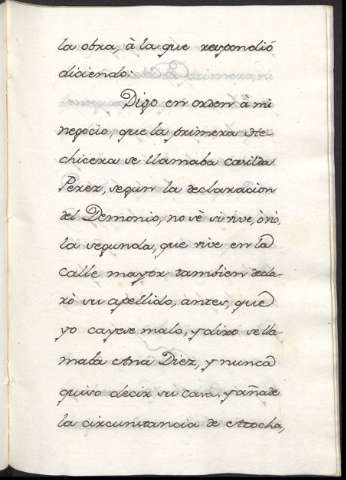 la obra, à la que respondió
diciendo:
Digo en orden à mi
negocio, que la primera He-
chicera se llamaba Casilda
Perez, segun la declaracion
del Demonio, no sè si vive, ò nó,
la segunda, que vive en la
calle mayor tambien decla-
rò su apellido, antes, que
yo cayese malo, y dixo se lla-
maba Ana Diez, y nunca
quiso decir su casa, y añade
la circunstancia de Atocha,